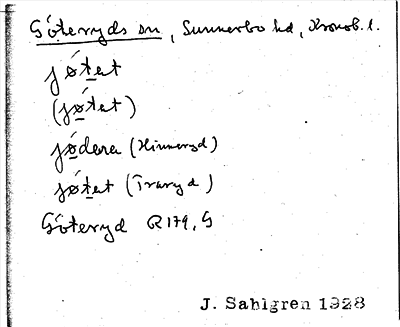 Göteryds sn, Sunnerbo hd, Kronob. l.
jøtet
(jøtet)
jødera (Hinneryd)
jøtet (Traryd)
Göteryd R179, G
J. Sahlgren 1928